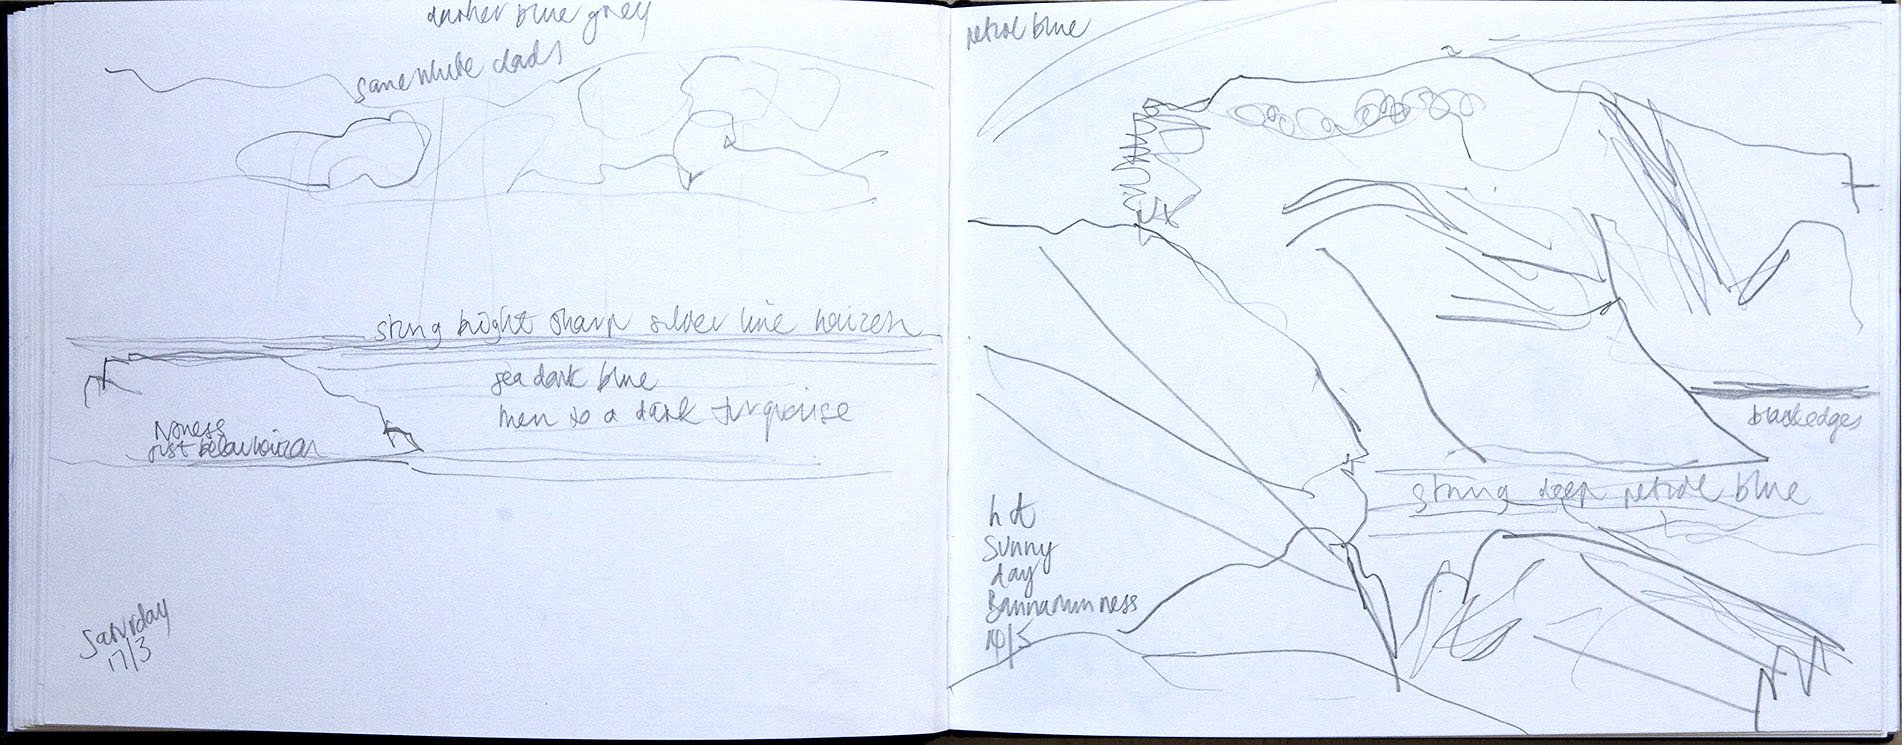 darker blue grey
some white clouds
strong bright sharp silver line horizon
sea dark blue
then to a dark turquoise
Noness
just below horizon
Saturday
17/3
petrol blue
black edges
strong deep petrol blue
hot
sunny
day
Bannamin ness